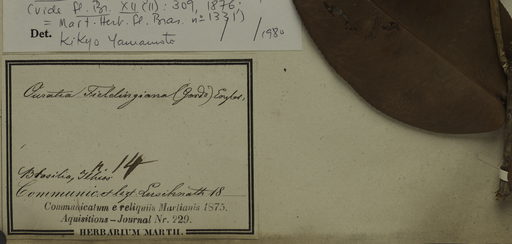 (vide fl. Br. XII (II): 309, 1876;
= Mart. Herb. fl. Bras. nº 1331)
Det. Kikyo Yamamoto / /1980
Ouratea Fieldingiana (Gardn) Engler,
Brasilia, 14
Communic. & leg. Luschnath 18
Communicatum e reliquiis Martianis 1875.
Aquisitions - Journal Nr. 229.
HERBARIUM MARTII.